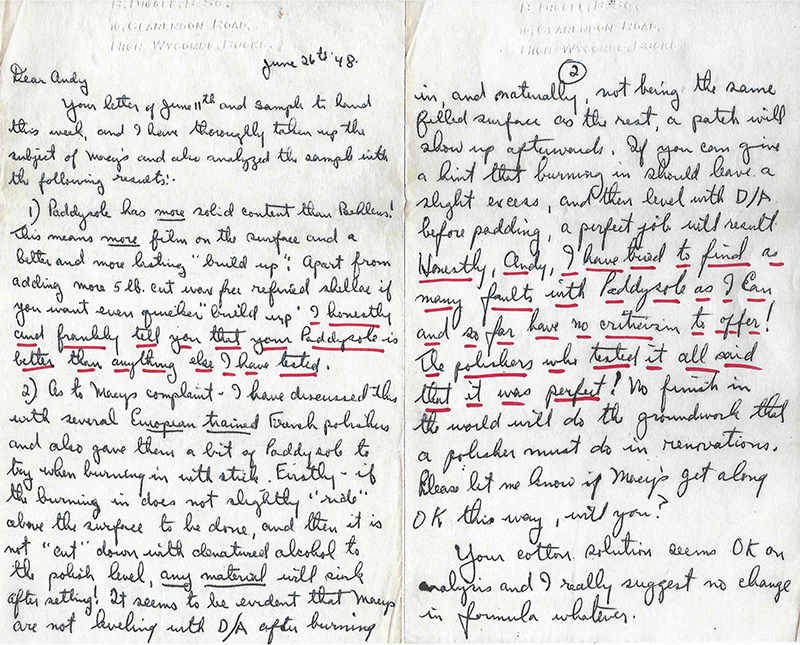 B. DIGGLE, B.SC.
16, CLARENDON ROAD,
HIGH WYCOMBE, BUCKS.
June 26th '48.
Dear Andy
Your letter of June 11th and sample to hand
this week, and I have thoroughly taken up the
subject of Macy's and also analyzed the sample with
the following results:-
1) Paddysole has more solid content than Behlens!
This means more film on the surface and a
better and more lasting "build up". Apart from
adding more 5 lb. cut wax free refined shellac if
you want even quicker "build up" I honestly
and frankly tell you that your Paddysole is
better than anything else I have tested.
2) As to Macys complaint - I have discussed this
with several European trained French polishers
and also gave them a bit of Paddysole to
try when burning in with stick. Firstly - if
the burning in does not slightly "ride"
above the surface to be done, and then it is
not "cut" down with denatured alcohol to
the polish level, any material will sink
after settling! It seems to be evident that Macys
are not leveling with D/A after burning
B. DIGGLE, B.SC.
16, CLARENDON ROAD,
HIGH WYCOMBE, BUCKS.
2
in, and naturally, not being the same
filled surface as the rest, a patch will
show up afterwards. If you can give
a hint that burning in should leave a
slight excess, and then level with D/A
before padding, a perfect job will result
Honestly, Andy, I have tried to find as
many faults with Paddysole as I can
and so far have no criticism to offer!
The polishers who tested it all said
that it was perfect! No finish in
the world will do the groundwork that
a polisher must do in renovations.
Please let me know if Macy's get along
OK this way, will you?
Your cotton solution seems OK on
analysis and I really suggest no change
in formula whatever.